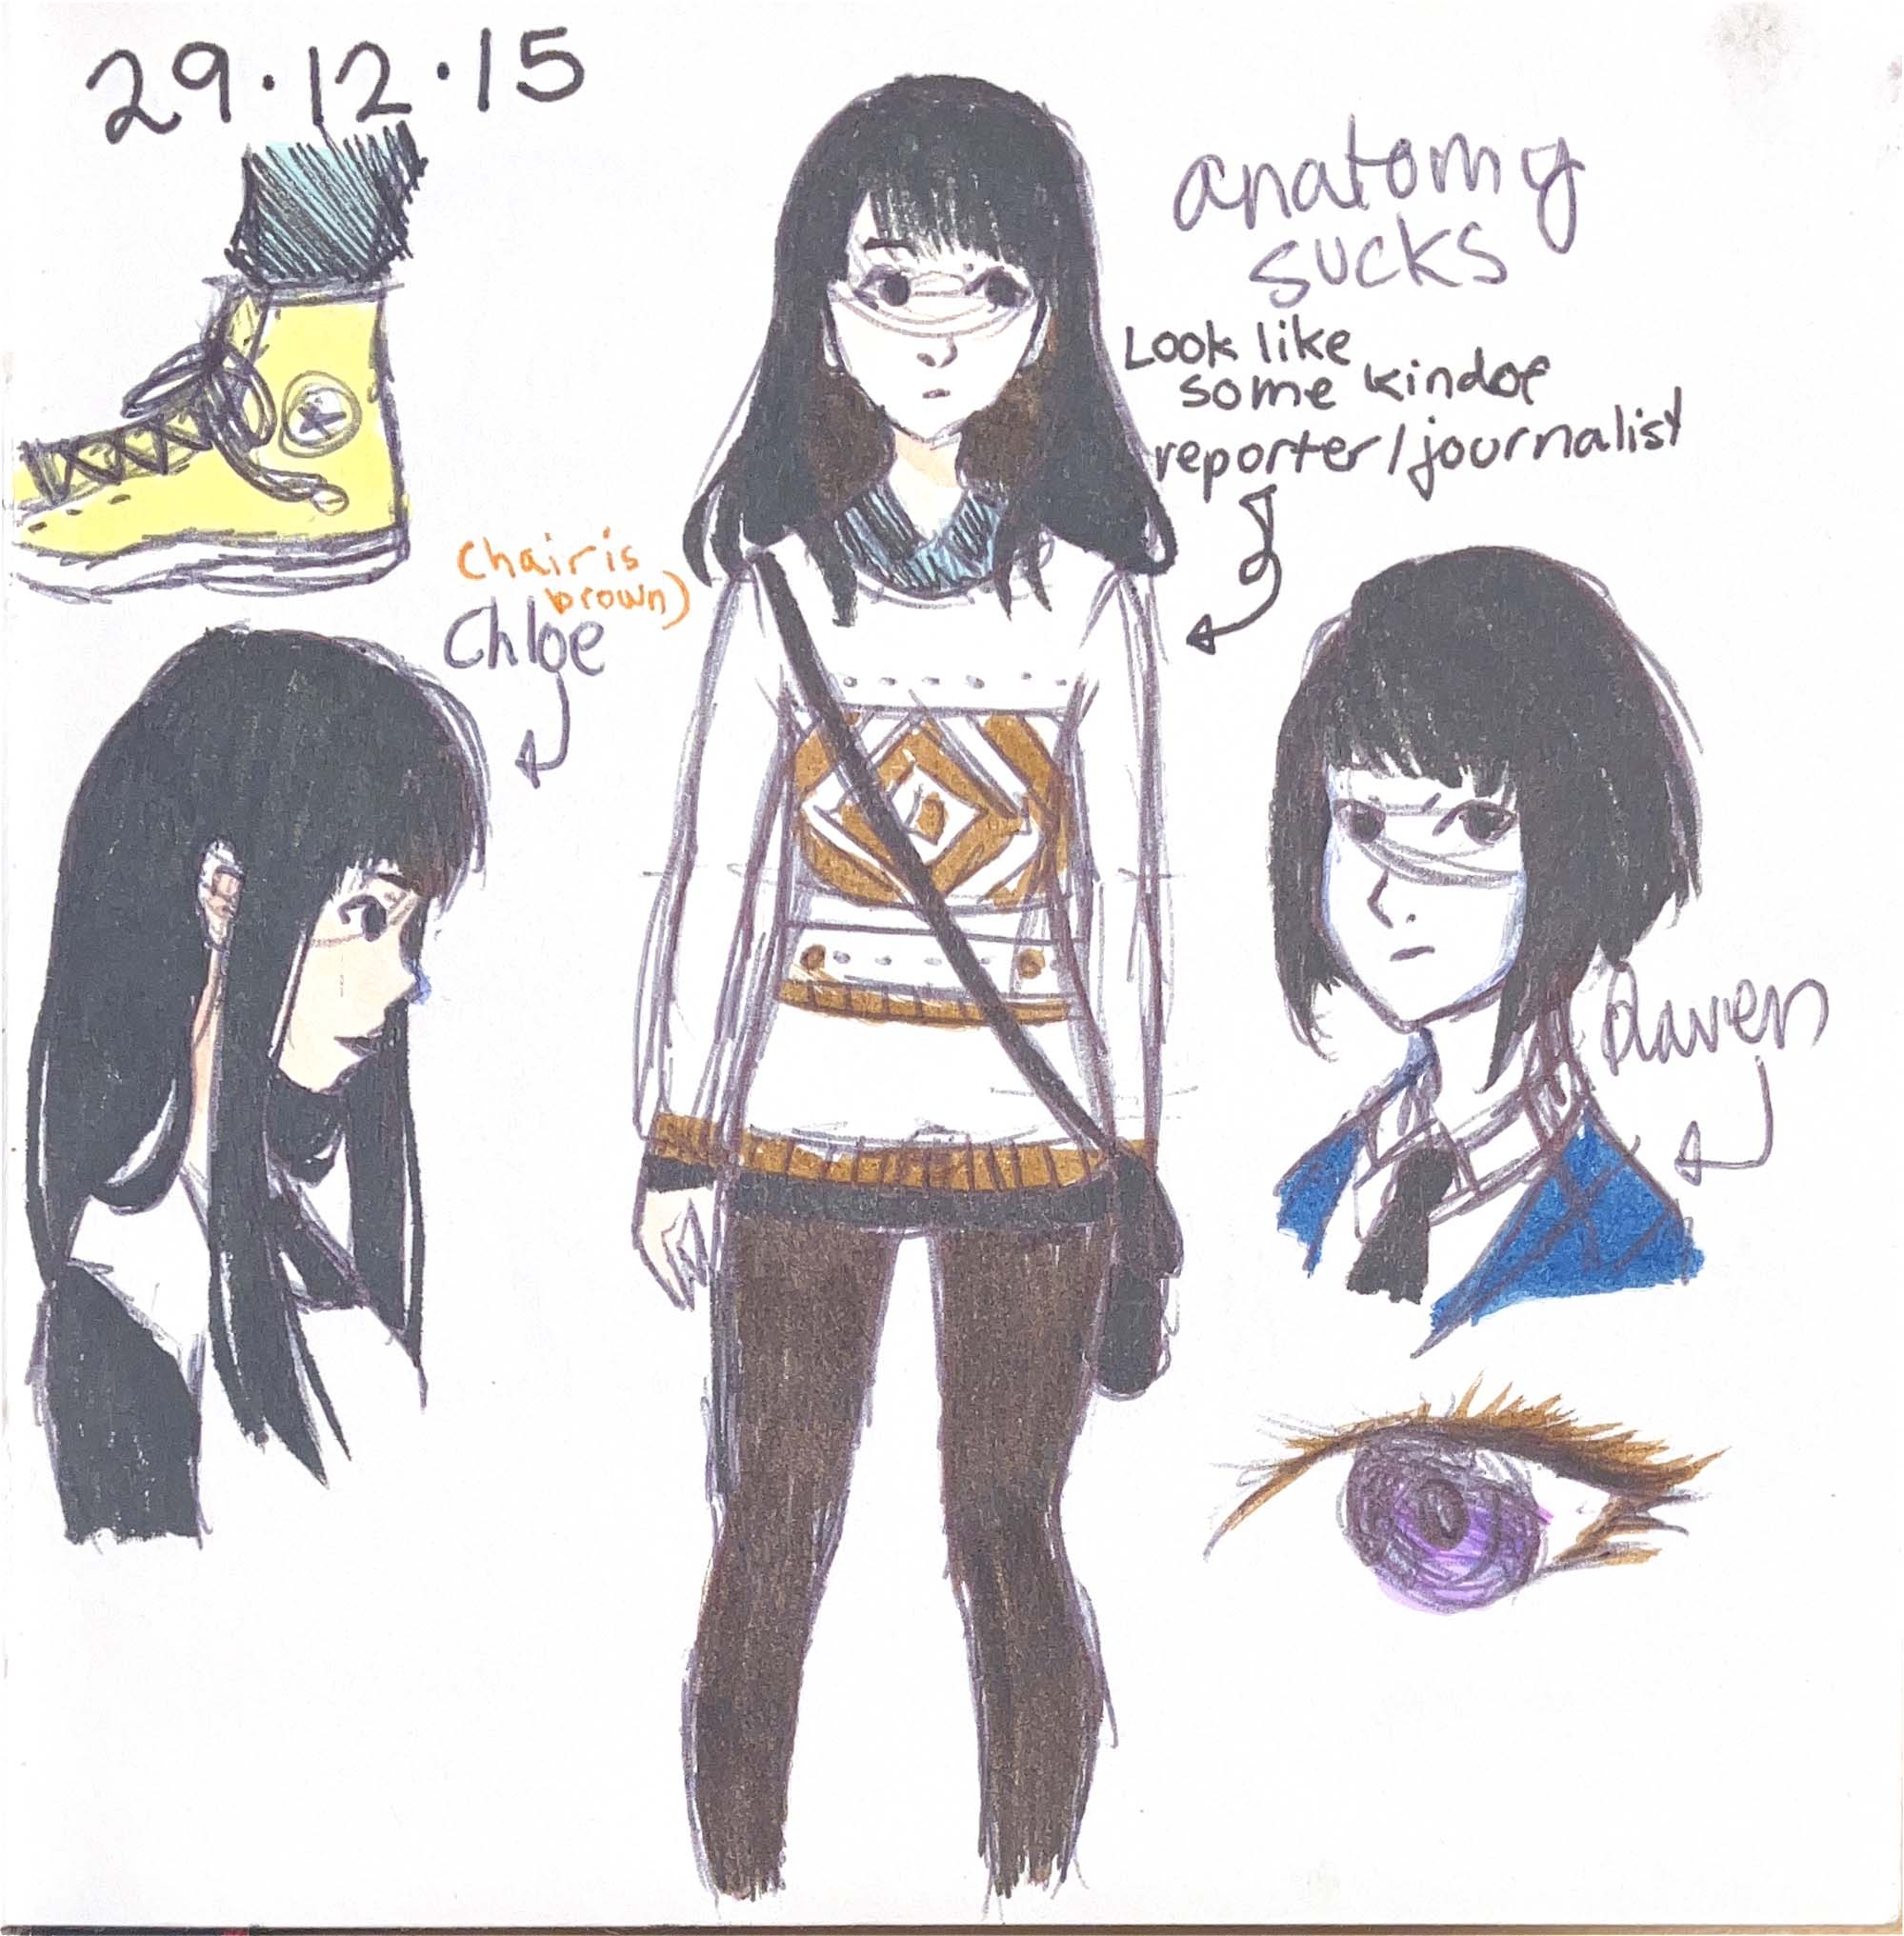 29.12.15
anatomy
sucks
Look like
some kindof
reporter/journalist
(hair is
brown)
Chloe
Raven